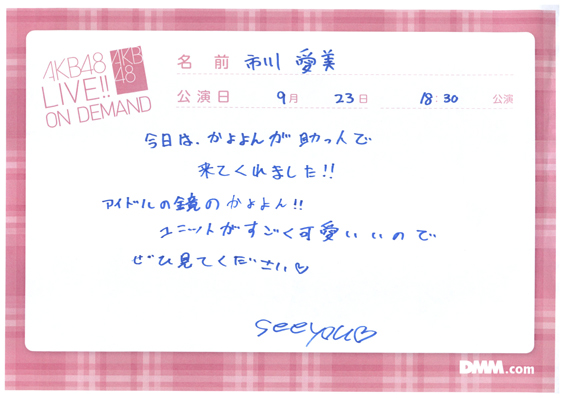 AKB48
LIVE!!
ON DEMAND
AKB
48
名前 市川 愛美
公演日 9月 23日 18:30 公演
今日は、かよよんが助っ人で
来てくれました!!
アイドルの鏡のかよよん!!
ユニットがすごく可愛いいので
ぜひ見てください♡
seeyou♡
DMM.com